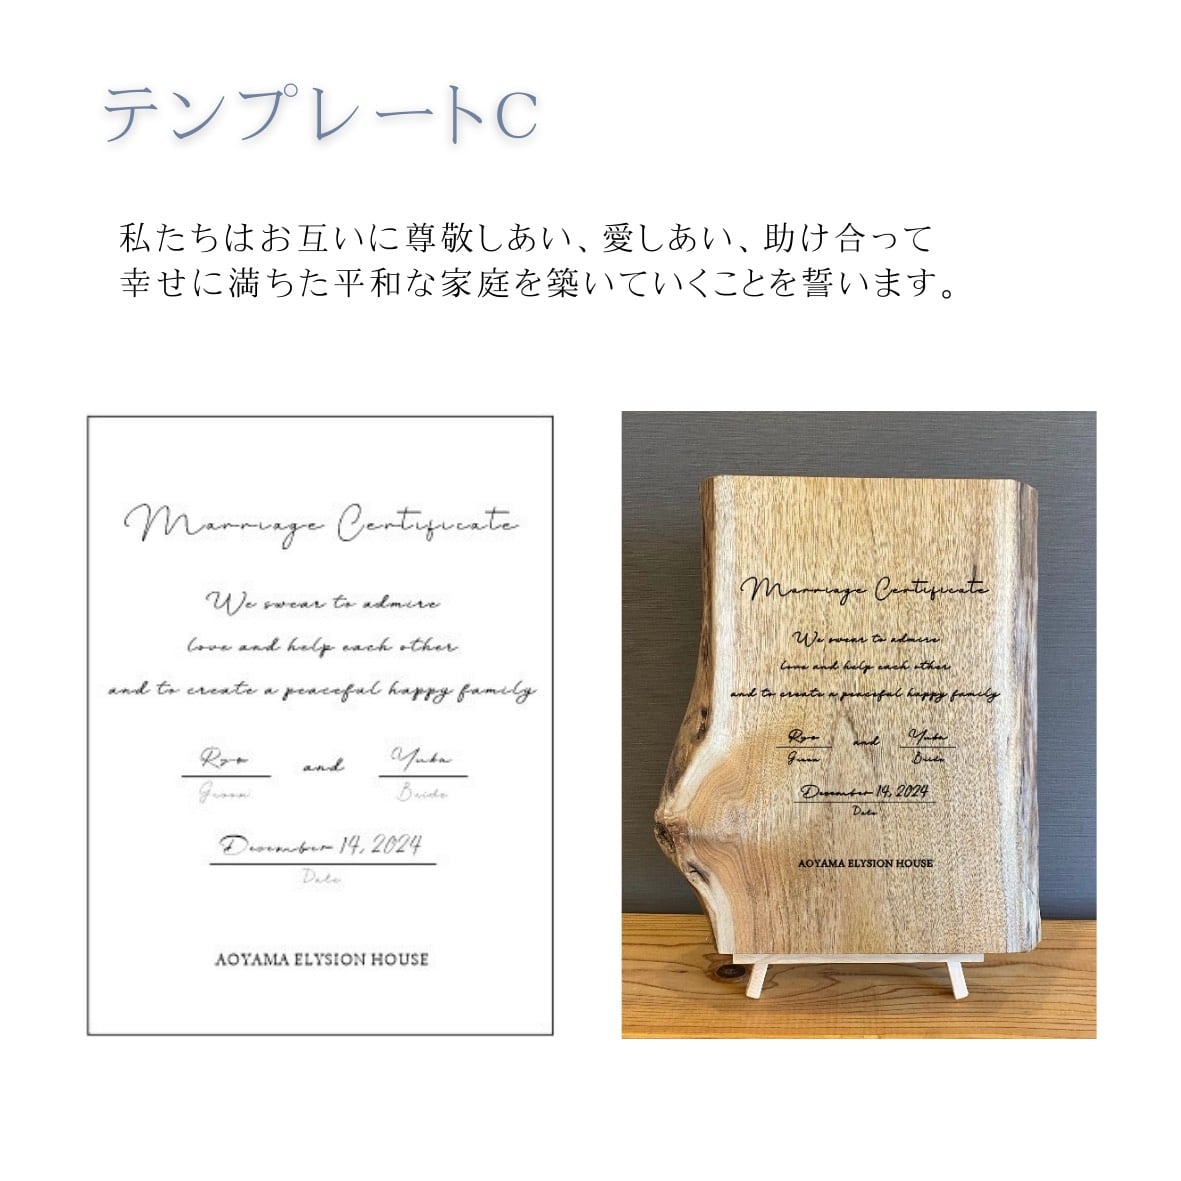 テンプレートC
私たちはお互いに尊敬しあい、愛しあい、助け合って
幸せに満ちた平和な家庭を築いていくことを誓います。
Marriage Certificate
We swear to admire
love and help each other
and to create a peaceful happy family
Ryo and Yuka
Groom Bride
December 14, 2024
Date
AOYAMA ELYSION HOUSE
Marriage Certificate
We swear to admire
love and help each other
and to create a peaceful happy family
Ryo and Yuka
Groom Bride
December 14, 2024
Date
AOYAMA ELYSION HOUSE